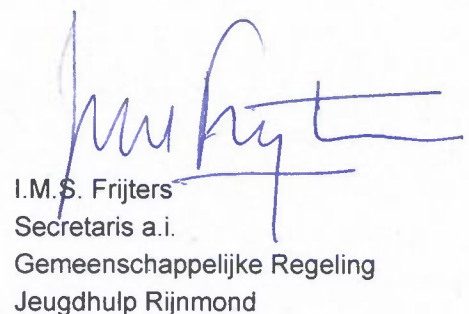 I.M.S. Frijters
Secretaris a.i.
Gemeenschappelijke Regeling
Jeugdhulp Rijnmond